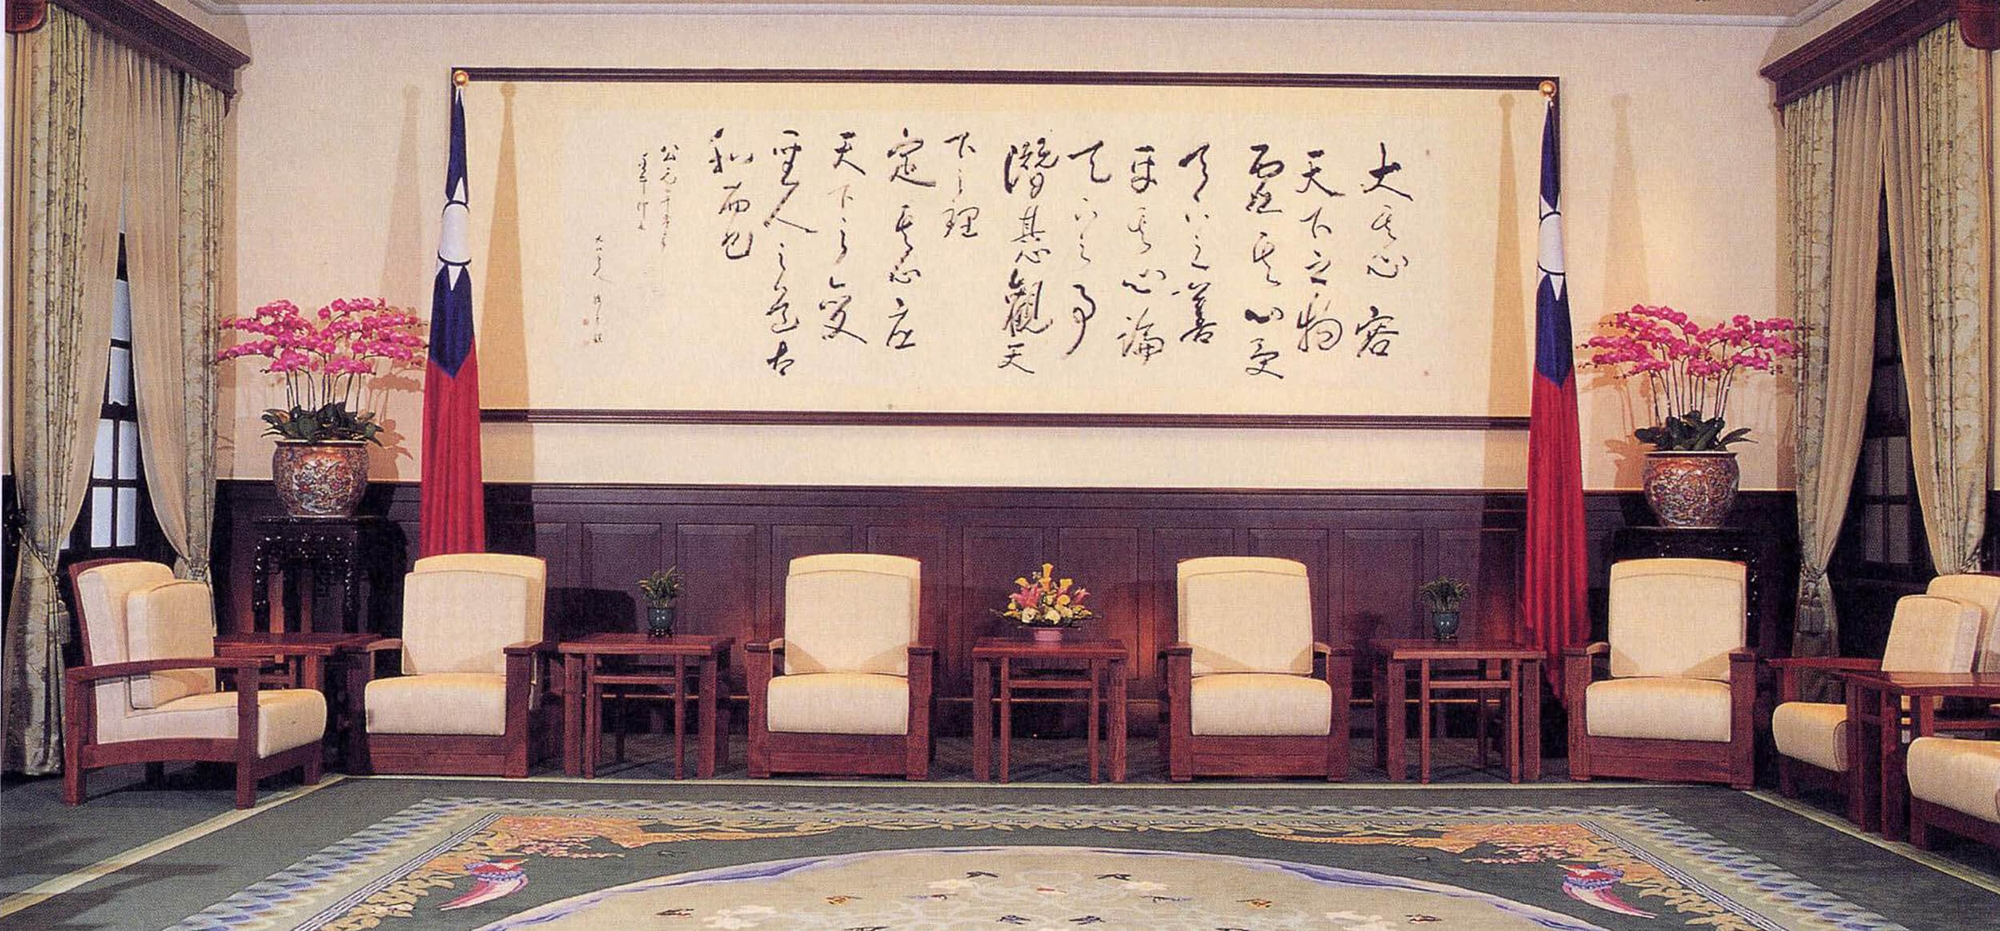 大其心容
天下之物
虛其心受
天下之善
平其心論
天下之事
潛其心觀天
下之理
定其心应
天下之變
聖人之道
和而已
公元二千年